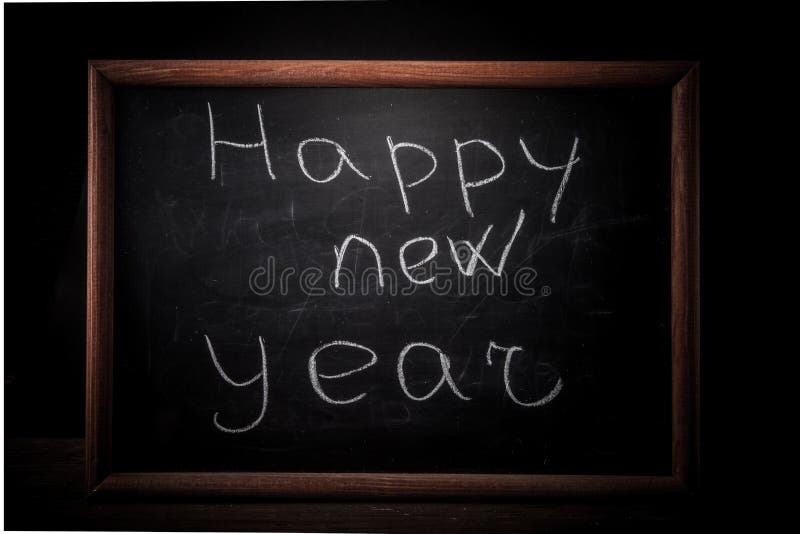 Happy
new
year
dreamstime